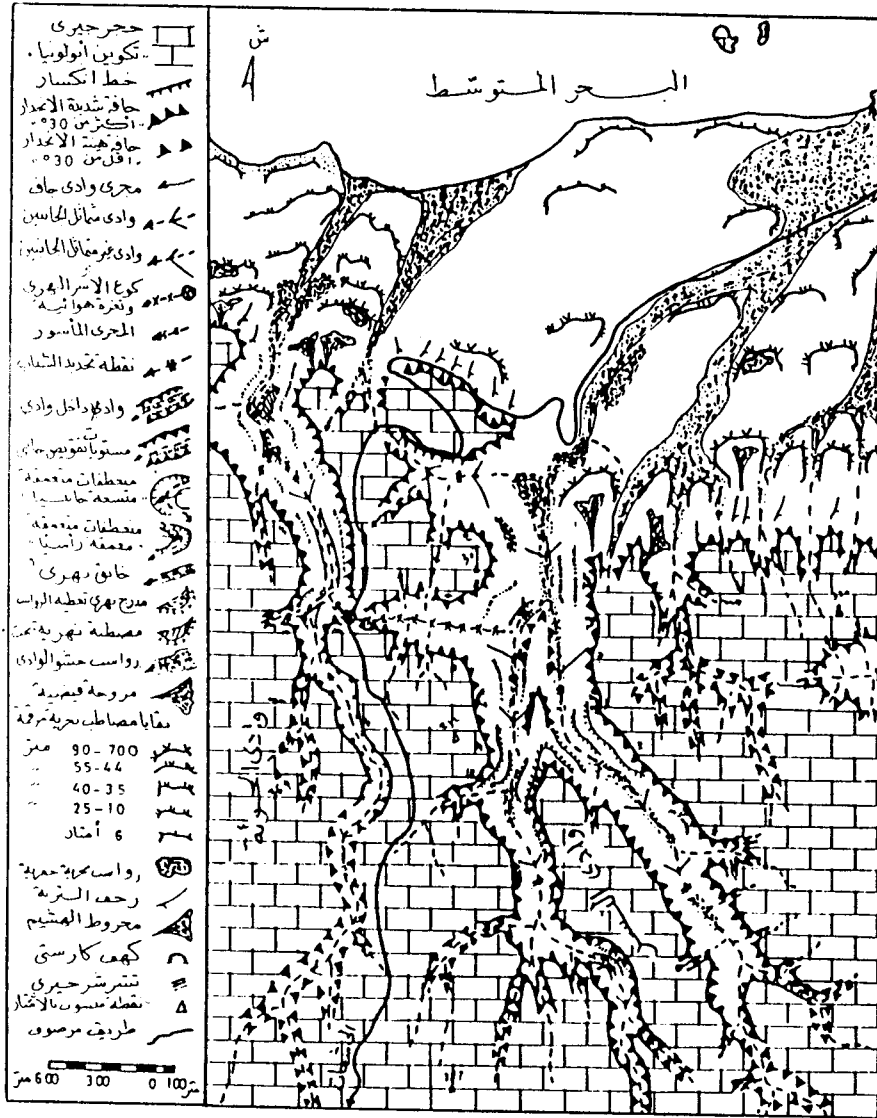 ش
البحر المتوسط
حجر جيرى
تكوين أبولونيا
خط انكسار
حافة شديدة الانحدار
أكثر من 30°
حافة هينة الانحدار
أقل من 30°
مجرى وادى جاف
وادى متماثل الجانبين
وادى غير متماثل الجانبين
كوع الاسر النهرى
وثغرة هوائية
المجرى المأسور
نقطة تجديد الشباب
وادى داخل وادى
منعطفات متعمقة
متسعة جانبيا
منعطفات متعمقة
متعمقة رأسيا
خانق نهرى
مدرج نهرى تغطيه الرواسب
مصطبة نهرية
رواسب حشو الوادى
مروحة فيضية
بقايا مصاطب بحرية
90-700 متر
55-44 "
40-35 "
25-10 "
6 أمتار
رواسب بحرية
زحف التربة
مخروط الهشيم
كهف كارستى
نقطة منسوب بالأمتار
طريق مرصوف
متر 600 300 0 100 متر
وادى